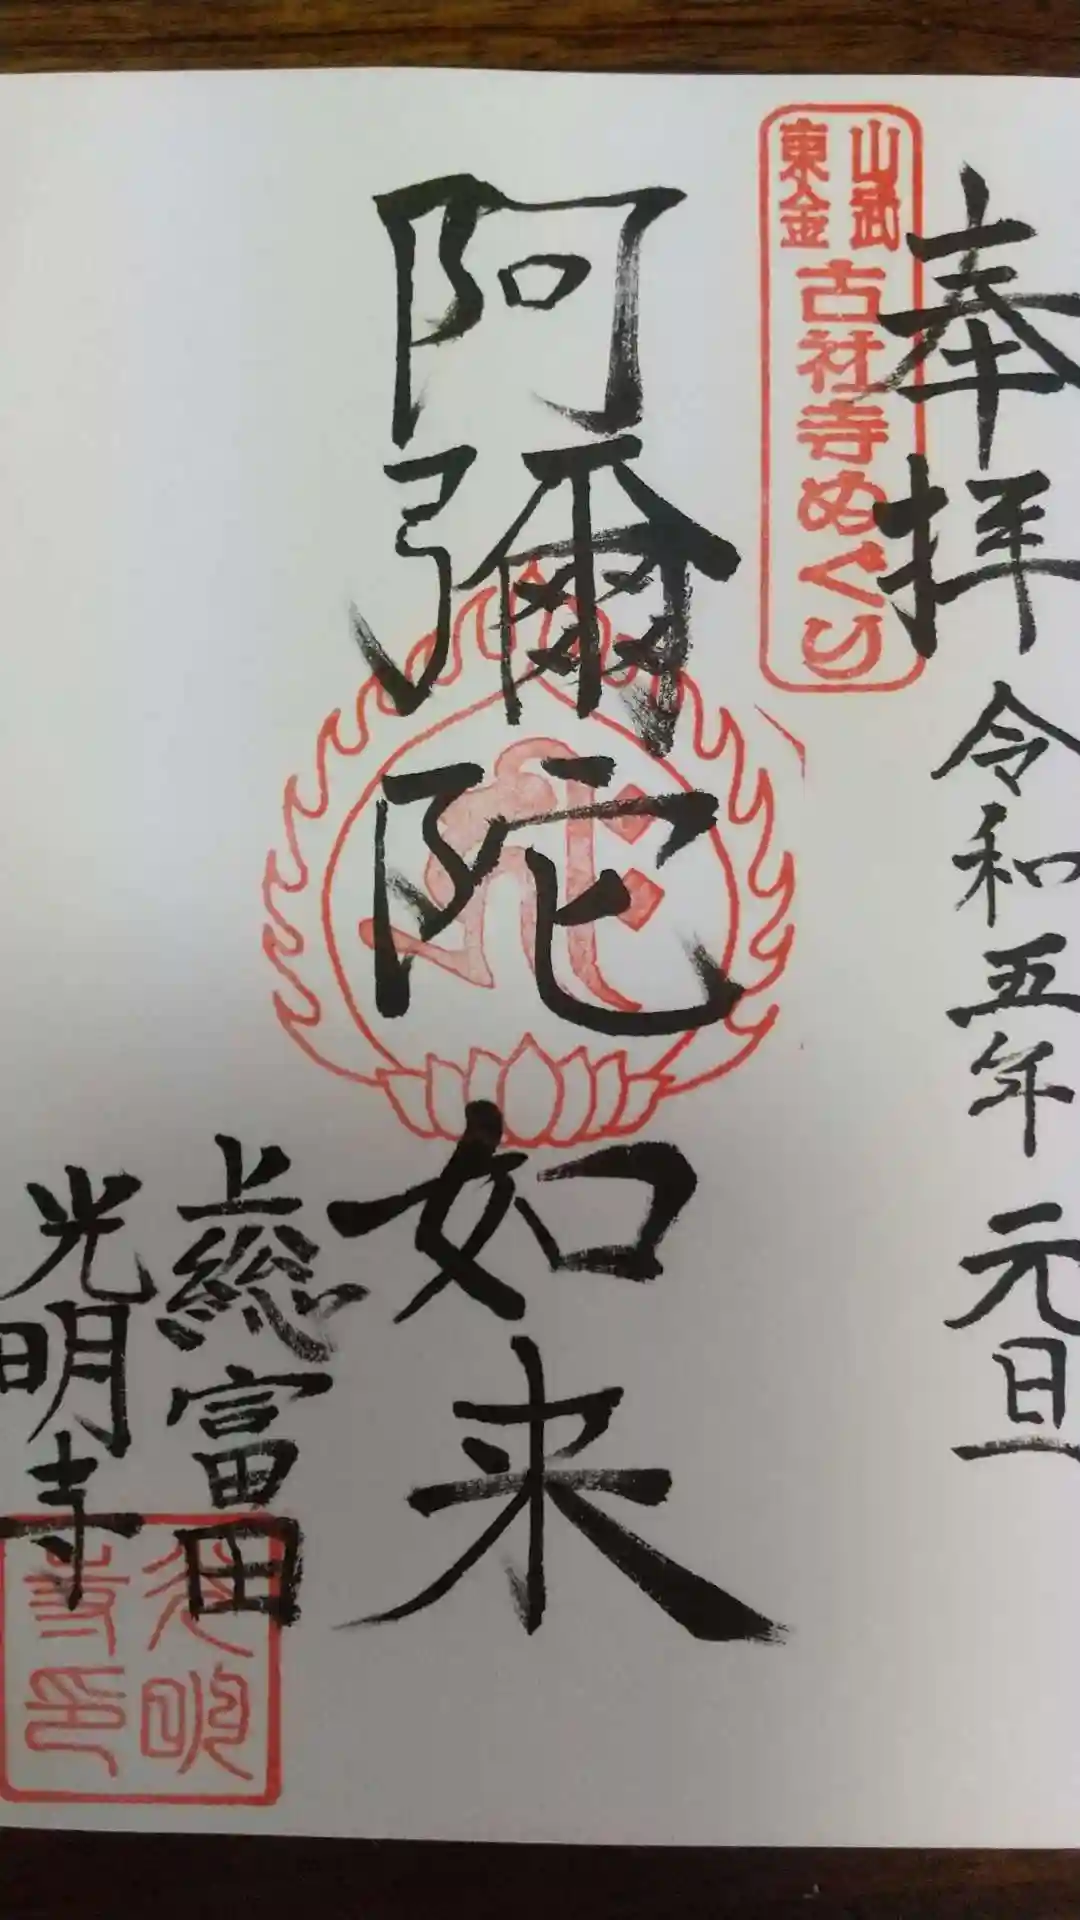 奉拝 令和五年 元旦
山武
東金
古社寺めぐり
阿彌陀如来
上総富田
光明寺
光明
寺印